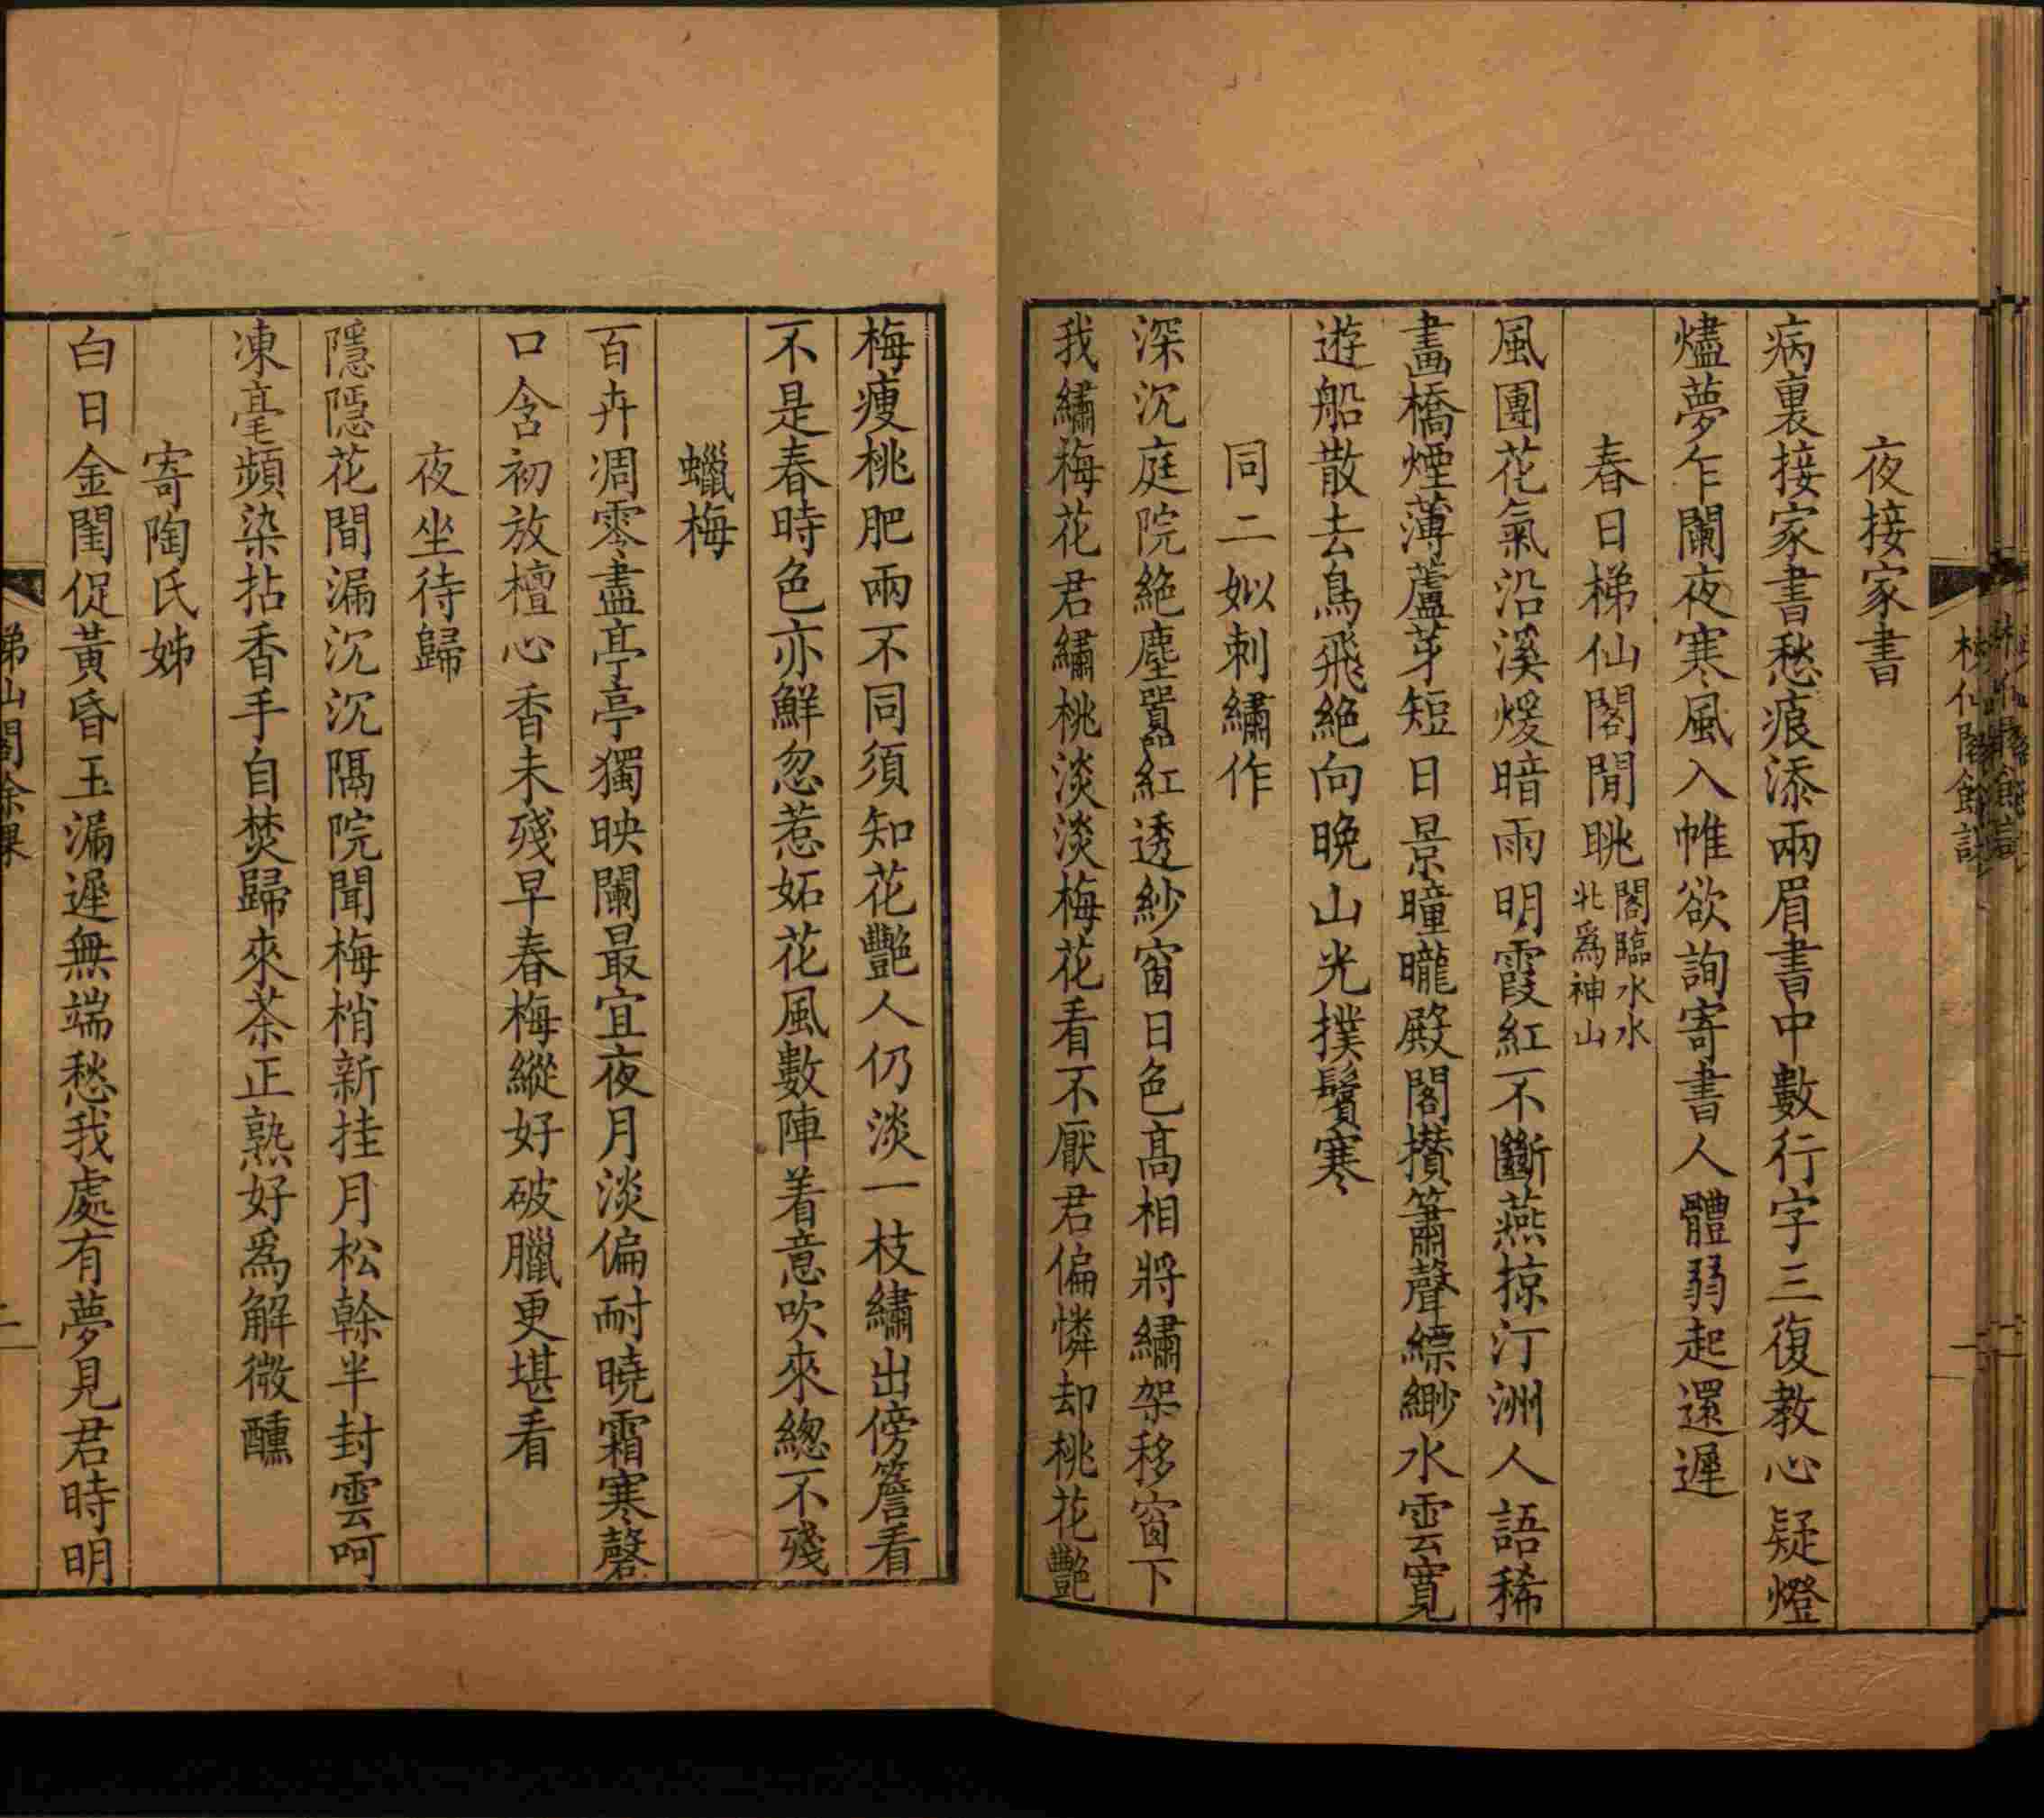 夜接家書
病裏接家書愁痕添兩眉書中數行字三復教心疑燈
燼夢乍闌夜寒風入帷欲詢寄書人體弱起還遲
春日梯仙閣閒眺閣臨水水北爲神山
風團花氣沿溪煖暗雨明霞紅不斷燕掠汀洲人語稀
畫橋煙薄蘆芽短日景曈曨殿閣攢簫聲縹緲水雲寬
遊船散去鳥飛絕向晚山光撲鬢寒
同二姒刺繡作
深沉庭院絕塵囂紅透紗窗日色高相將繡架移窗下
我繡梅花君繡桃淡淡梅花看不厭君偏憐却桃花艷
梅瘦桃肥兩不同須知花艷人仍淡一枝繡出傍簷看
不是春時色亦鮮忽惹妬花風數陣着意吹來總不殘
蠟梅
百卉凋零盡亭亭獨映闌最宜夜月淡偏耐曉霜寒磬
口含初放檀心香未殘早春梅縱好破臘更堪看
夜坐待歸
隱隱花間漏沉沉隔院聞梅梢新挂月松幹半封雲呵
凍毫頻染拈香手自焚歸來茶正熟好爲解微醺
寄陶氏姊
白日金閨促黃昏玉漏遲無端愁我處有夢見君時明